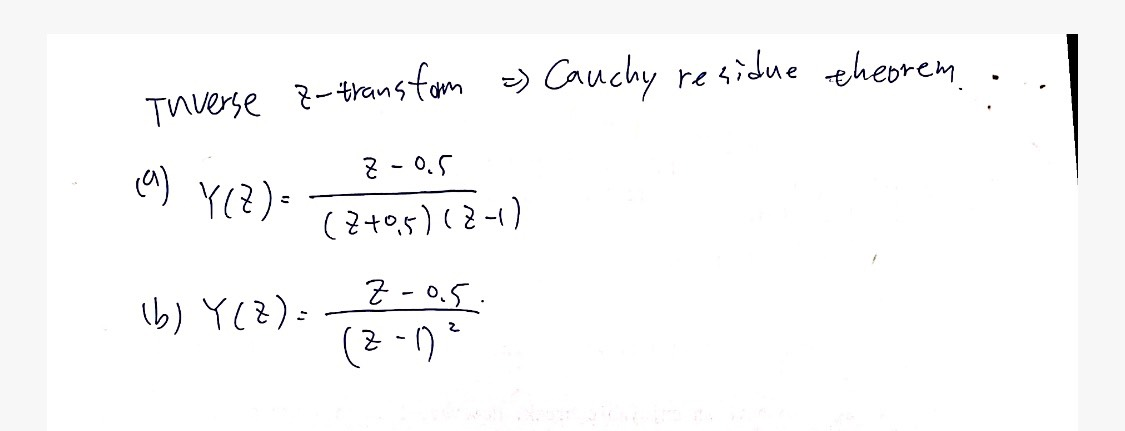 Inverse z-transfom => Cauchy residue theorem.
(a) Y(z) = (z - 0.5) / ((z+0.5)(z-1))
(b) Y(z) = (z - 0.5) / (z-1)^2